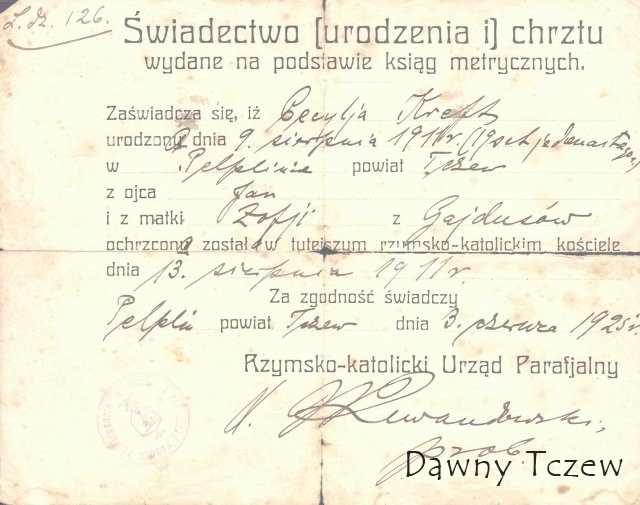 L. dz. 126.
Świadectwo (urodzenia i) chrztu
wydane na podstawie ksiąg metrycznych.
Zaświadcza się, iż Cecylja Kreft
urodzona dnia 9. sierpnia 1911r. (19set jedenastego)
w Pelplinie powiat Tczew
z ojca Jan
i z matki Zofji z Gajdusów
ochrzcona został w tutejszym rzymsko-katolickim kościele
dnia 13. sierpnia 1911r.
Za zgodność świadczy
Pelplin powiat Tczew dnia 3. czerwca 1925r.
Rzymsko-katolicki Urząd Parafjalny
Lewandowski,
prob.
Dawny Tczew